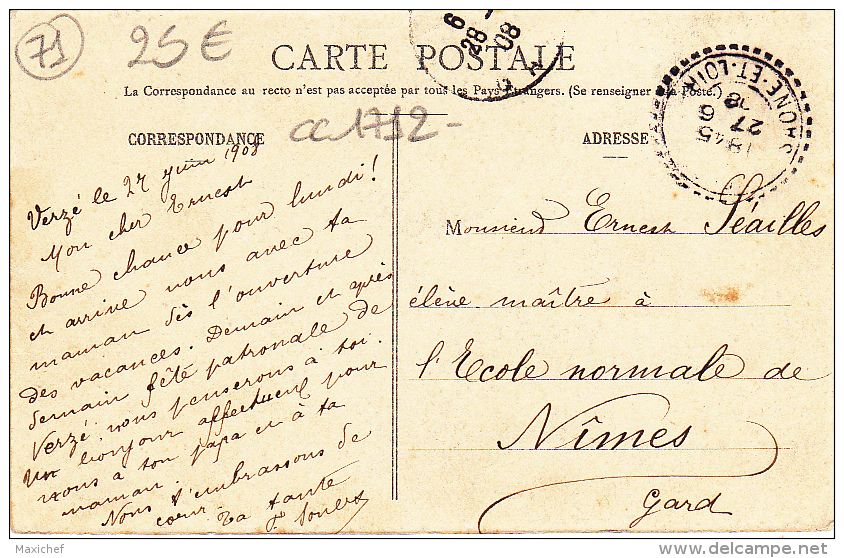 71
25€
CARTE POSTALE
6
28
08
La Correspondance au recto n'est pas acceptée par tous les Pays Étrangers. (Se renseigner à la Poste.)
CORRESPONDANCE
cc1792-
ADRESSE
SAONE-ET-LOIRE
1845
27
6
08
Verzé le 27 juin 1908
Mon cher Ernest
Bonne chance pour lundi!
et arrive nous avec ta
maman dès l'ouverture
des vacances. Demain et après
demain fête patronale de
Verzé nous penserons à toi.
Un bonjour affectueux pour
vous à ton papa et à ta
maman.
Nous t'embrassons de
cœur. Ta tante
Monsieur Ernest Séailles
élève maître à
l'Ecole normale de
Nîmes
Gard
Maxichef
delcampe.net